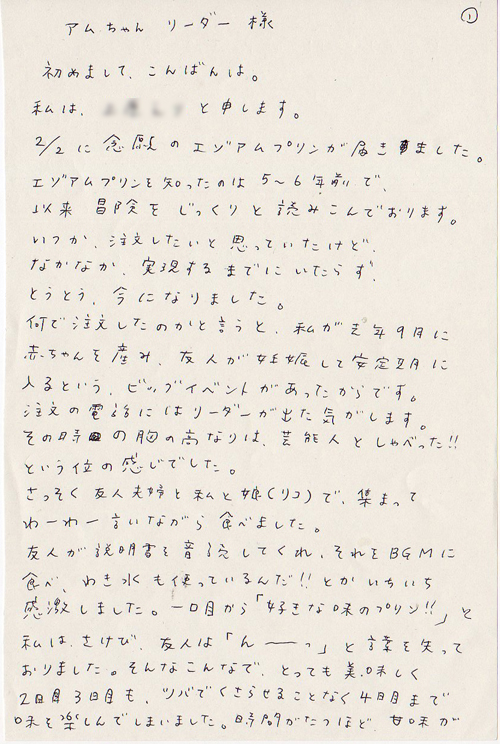 ①
アムちゃん リーダー 様
初めまして、こんばんは。
私は、 と申します。
2/2 に 念願 の エゾアムプリンが 届きました。
エゾアムプリンを 知ったのは 5〜6 年前 で、
以来 冒険を じっくりと 読みこんでおります。
いつか、注文したいと 思っていたけど、
なかなか、実現する までに いたらず、
とうとう、今に なりました。
何で 注文したのかと 言うと、私が 去年9月に
赤ちゃんを 産み、友人が 妊娠して 安定期に
入るという、ビッグイベントが あったからです。
注文の 電話には リーダーが 出た 気がします。
その時 の 胸の 高なりは、芸能人と しゃべった!!
という位の 感じでした。
さっそく 友人夫婦と 私と 娘(リコ)で、集まって
わーわー 言いながら 食べました。
友人が 説明書を 音読してくれ、それを BGMに
食べ、わき水も 使っているんだ!! とか いちいち
感激しました。一口目から「好きな 味の プリン!!」と
私は さけび、友人は「んーーっ」と 言葉を 失って
おりました。そんなこんなで、とっても 美味しく
2日目 3日目も、ツバで くさらせることなく 4日目まで
味を 楽しんでしまいました。時間がたつほど、甘味が